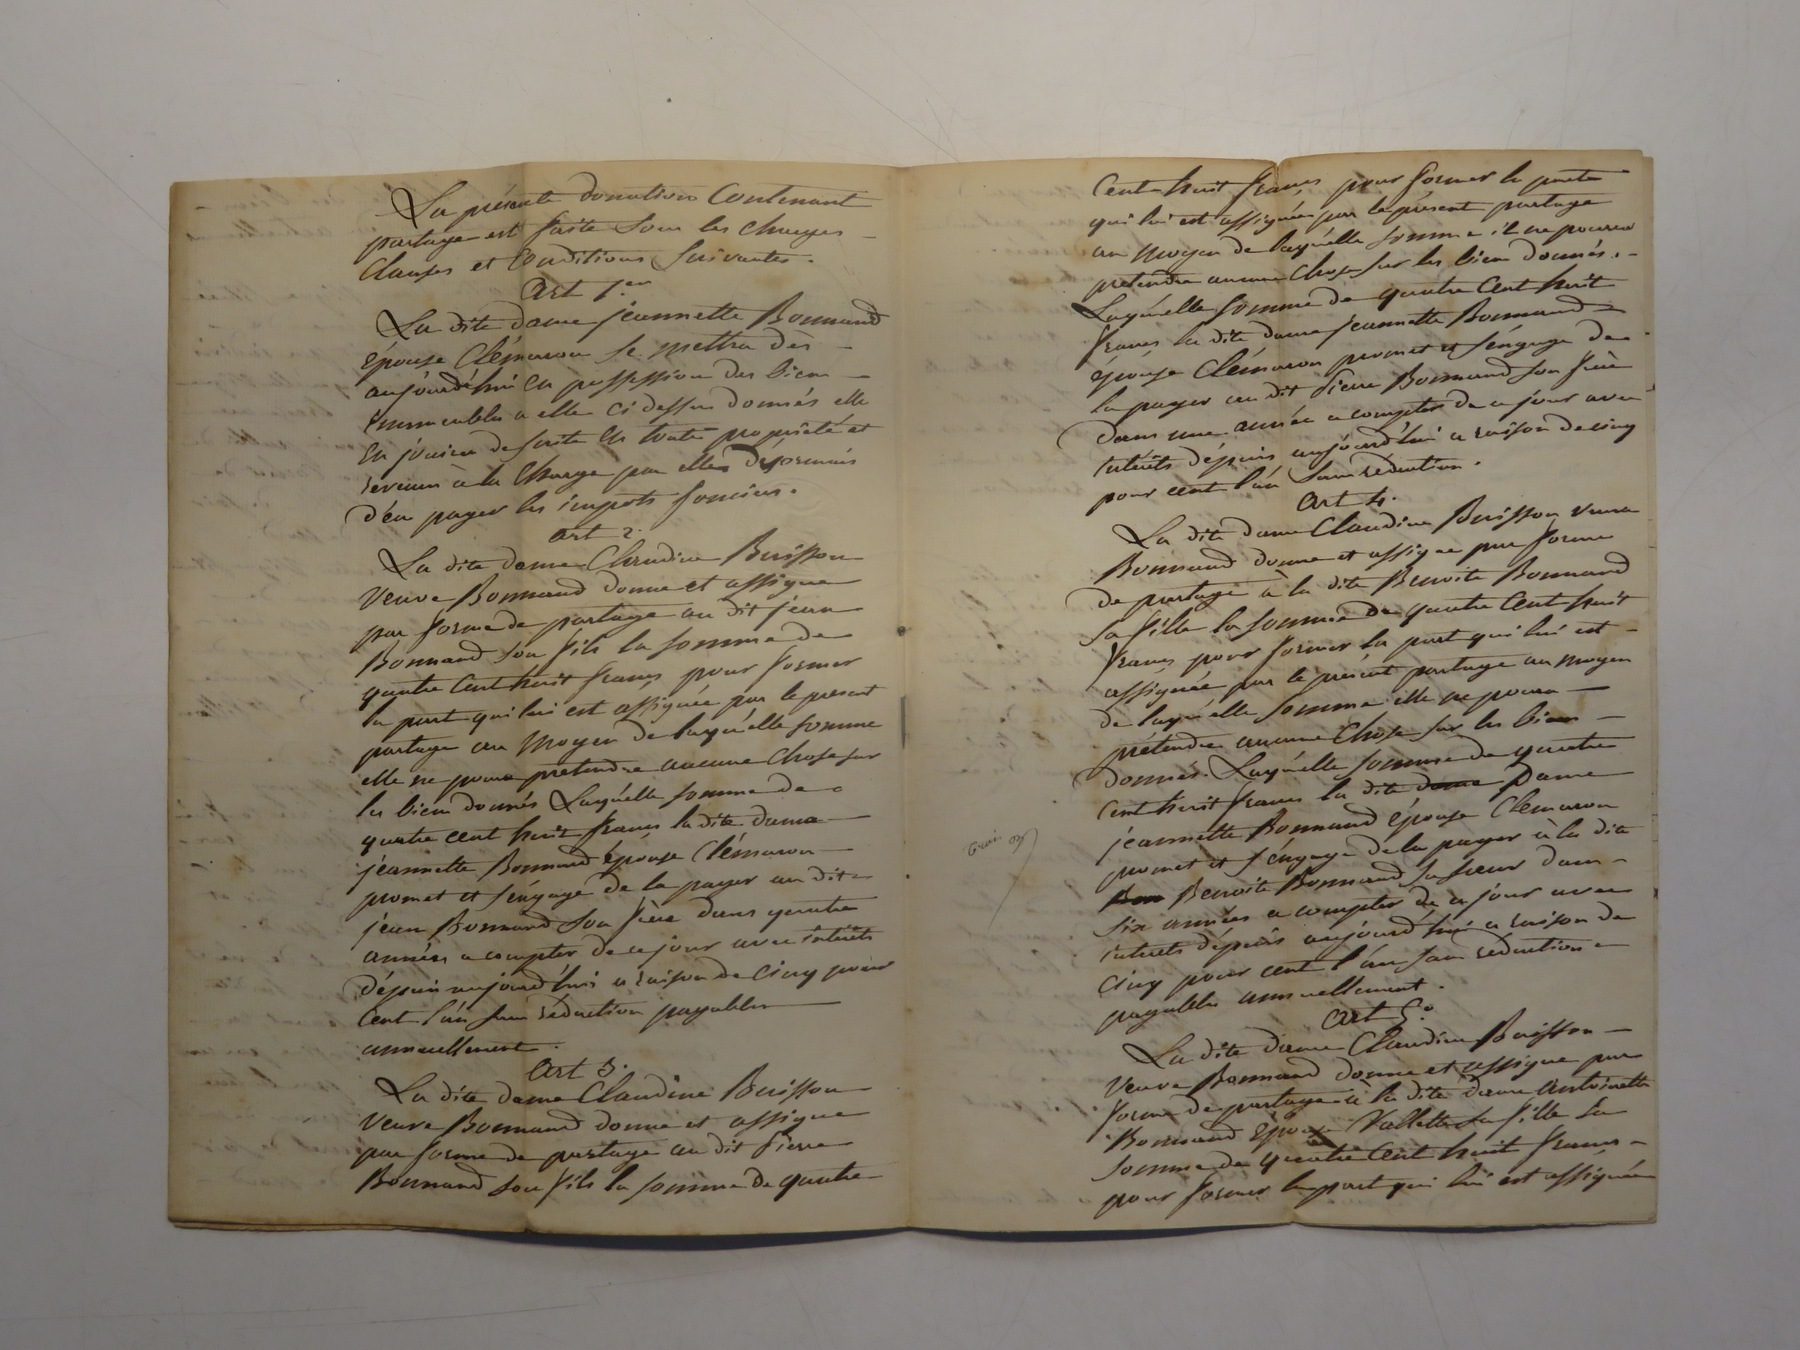 La présente donation Contenant
partage est faite Sous les charges
Clauses et Conditions Suivantes.
Art 1.er
La dite dame jeannette Bonnand
épouse Clémaron se mettra dès
aujourd'hui en possession des biens
immeubles a elle ci dessus donnés elle
en jouira de suite en toute propriété et
revenus à la Charge par elle désormais
d'en payer les impots fonciers.
art 2.
La dite dame Claudine Buisson
Veuve Bonnand donne et assigne
par forme de partage au dit jean
Bonnand son fils la somme de
quatre Cent huit francs pour former
la part qui lui est assignée par le présent
partage au moyen de laquélle somme
elle ne poura pretendre aucune Chose sur
les bien donnés Laquélle somme de
quatre cent huit francs la dite dame
jeannette Bonnand épouse Clémaron
promet et s'engage de la payer au dit
jean Bonnand Son frère dans quatre
années a compter de ce jour avec intérêts
dépuis aujourd'hui a raison de Cinq pour
Cent l'an sans réduction payables
annuellement.
Art 3.
La dite dame Claudine Buisson
Veuve Bonnand donne et assigne
par forme de partage au dit Pierre
Bonnand son fils la somme de quatre
Cent huit francs pour former la part
qui lui est assignée par le présent partage
au moyen de laquélle somme il ne pourra
pretendre aucune Chose sur les bien donnés.
Laquélle somme de quatre Cent huit
francs la dite dame jeannette Bonnand
épouse Clémaron promet et s'engage de
la payer au dit Pierre Bonnand son frère
dans une année a compter de ce jour avec
intérêts dépuis aujourd'hui a raison de cinq
pour cent l'an sans réduction.
Art 4.
La dite dame Claudine Buisson veuve
Bonnand donne et assigne par forme
de partage à la dite Benoite Bonnand
sa fille la somme de quatre Cent huit
francs pour former la part qui lui est
assignée par le présent partage au moyen
de laquélle somme elle ne poura
prétendre aucune Chose sur les biens
donnés. Laquélle somme de quatre
Cent huit francs la dite dame Dame
jeannette Bonnand épouse Clemaron
promet et s'engage de la payer à la dite
Benoite Bonnand sa sœur dans
six années a compter de ce jour avec
intérets dépuis aujourd'hui a raison de
Cinq pour cent l'an sans réduction
payables annuellement.
Art 5.e
La dite dame Claudine Buisson
Veuve Bonnand donne et assigne par
forme de partage à la dite dame Antoinette
Bonnand épouse Vallette sa fille la
somme de quatre Cent huit francs
pour former la part qui lui est assignée